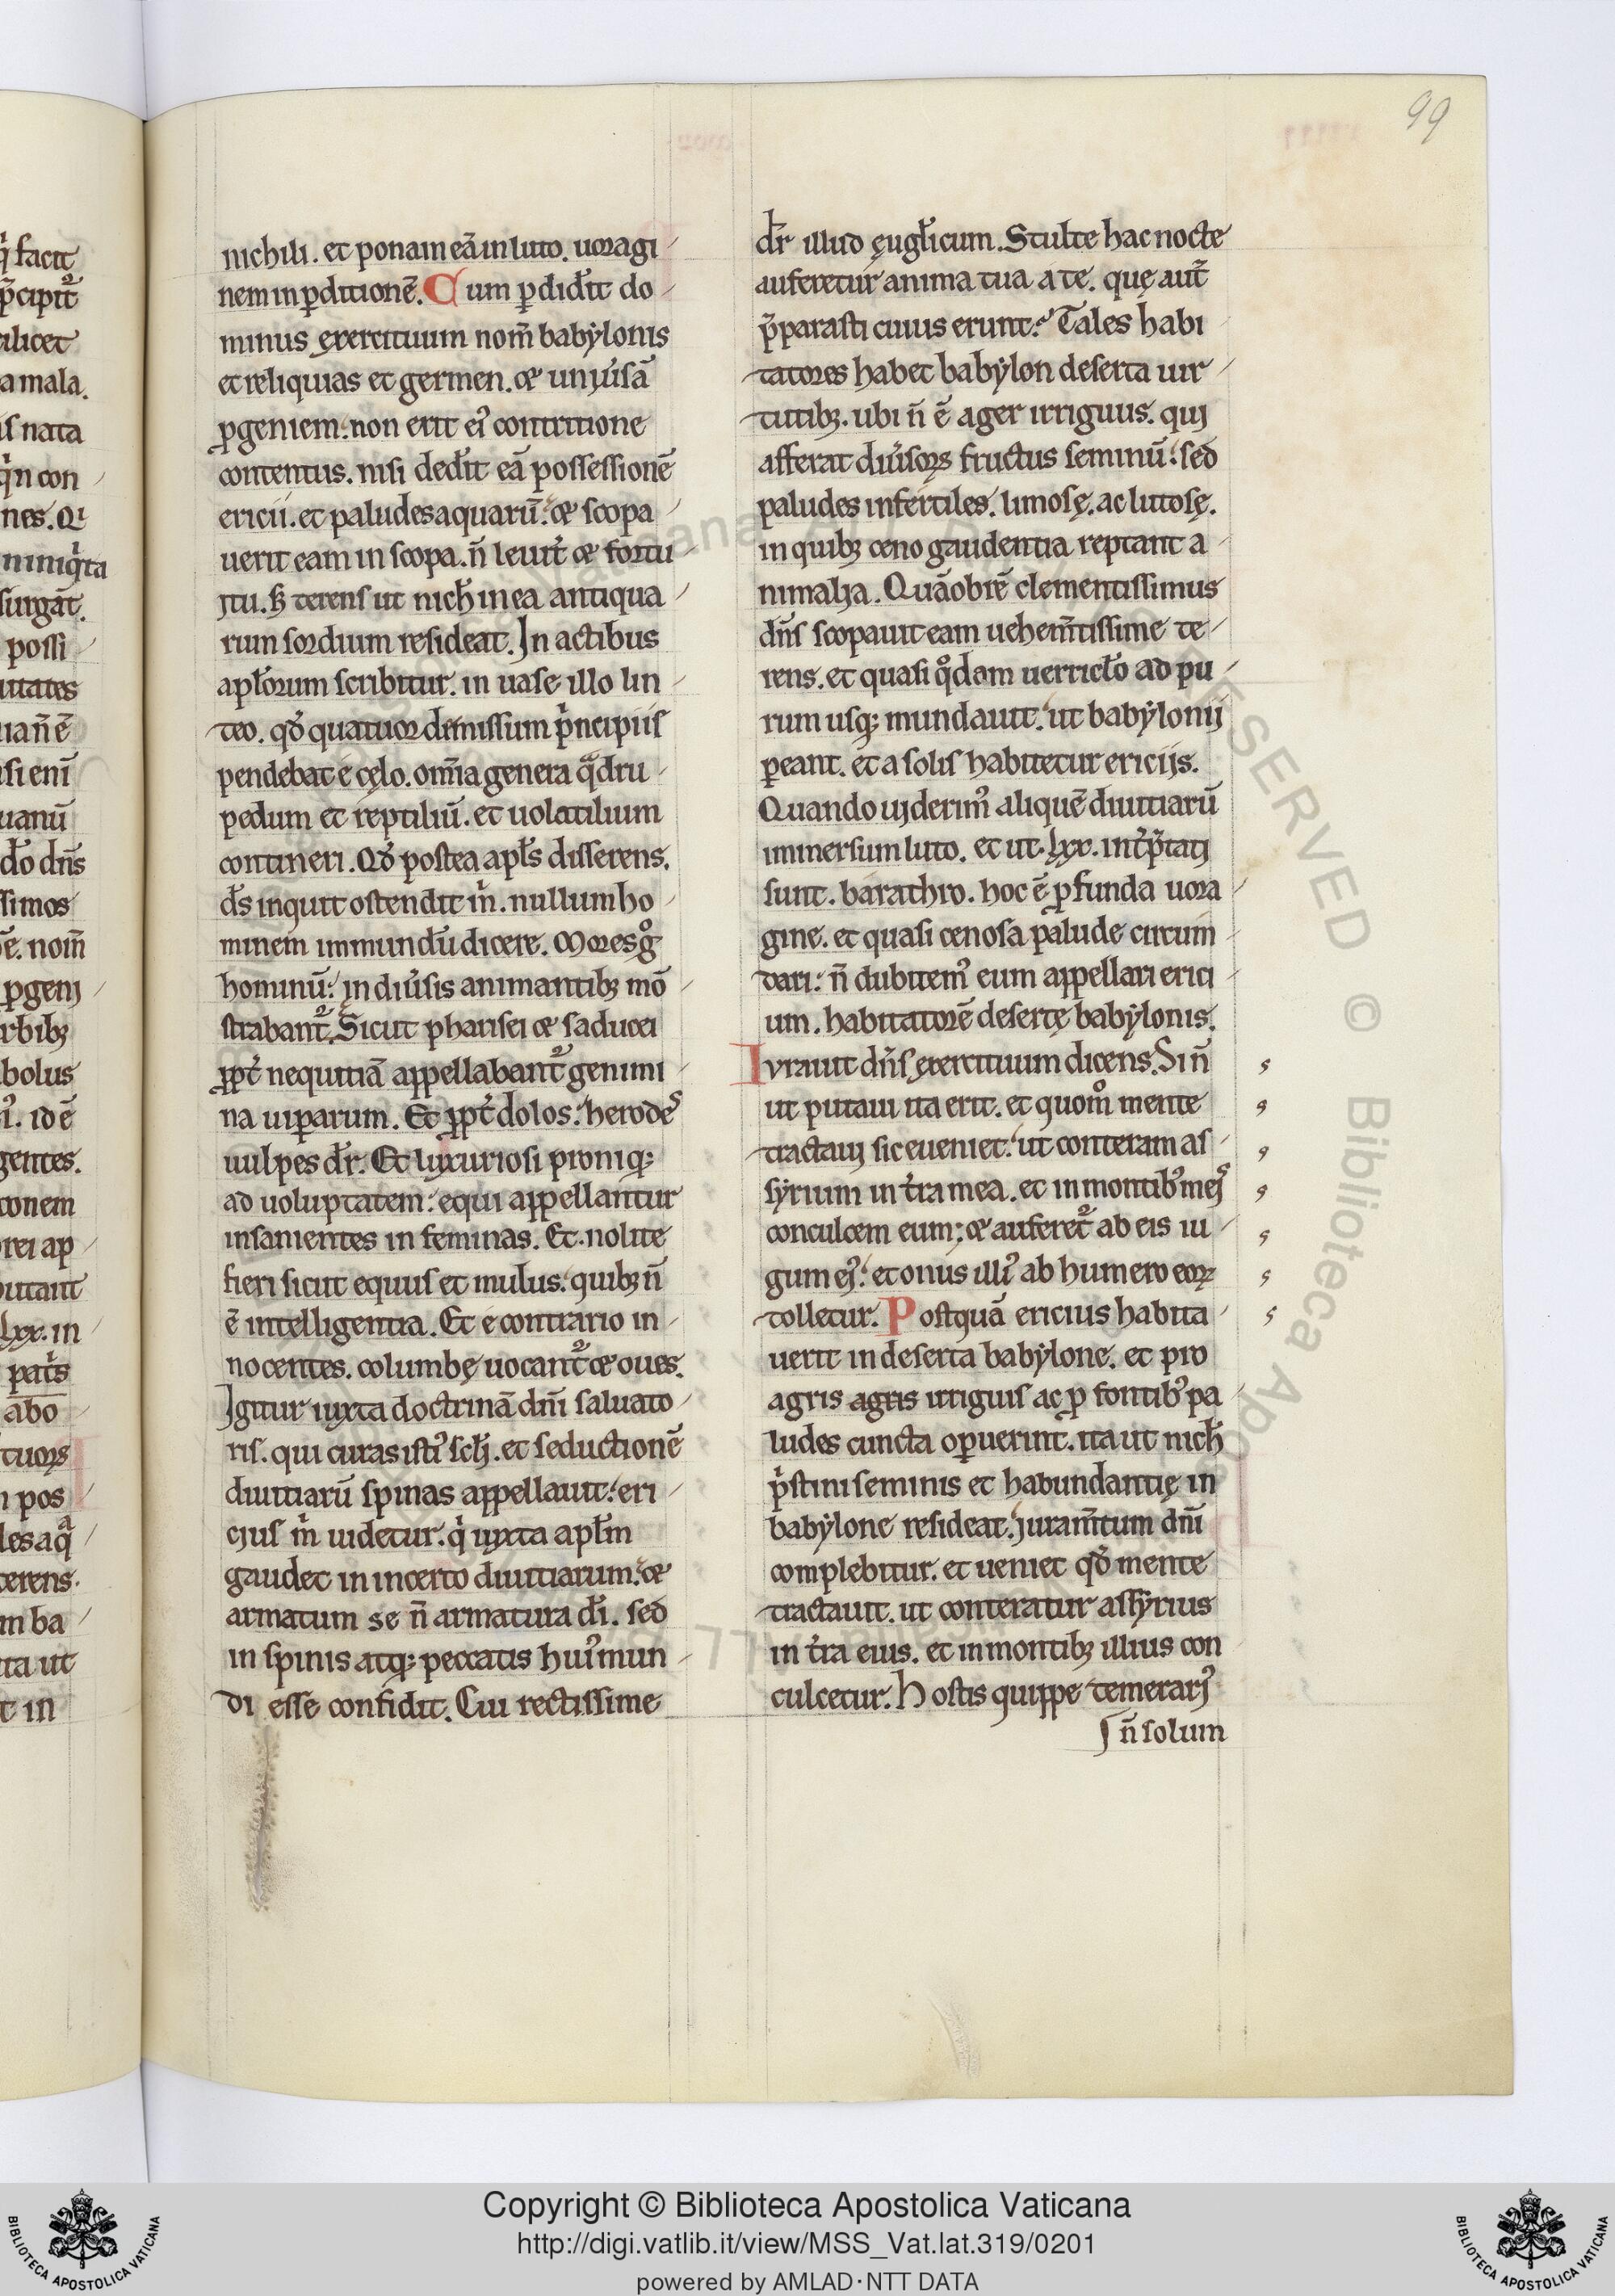 99
nichili. et ponam eā in luto. uoragi
nem in ꝑditionē. Cum ꝑdidit̄ do
minus exercituum nom̄ babẏlonis
et reliquias et germen. ⁊ uniu͛sā
ꝓgeniem: non erit ei᷒ contritione
contentus. nisi dedit̄ eā possessionē
ericii. et paludes aquarū: ⁊ scopa
uerit eam in scopa. n̄ leuit͛ ⁊ fortu
jtu. ß terens ut nich̄ in ea antiqua
rum sordium resideat. In actibus
apl̄orum scribitur. in uase illo lin
teo. qd̓ quatuor demissum pⁱncipiis
pendebat e cęlo. om̄ia genera qᵃdru
pedum et reptiliū. et uolatilium
contineri. Qd̓ postea apl̄s disserens.
d̄s inquit ostendit mⁱ. nullum ho
minem immundū dicere. Mores gͦ
hominū: in diu͛sis animantibꝫ mō
strabant᷑. Sicut pharisei ⁊ saducei
ꝓpt͛ nequitiā appellabant᷑ genimi
na uiꝑarum. Et ꝓpt͛ dolos: herodeˢ
uulpes dr̄. Et luxuriosi proniqꝫ
ad uoluptatem: equi appellantur
insanientes in feminas. Et nolite
fieri sicut equus et mulus: quibꝫ n̄
ē intelligentia. Et e contrario in
nocentes. columbę uocant᷑ ⁊ oues.
Igitur iuxta doctrinā dn̄i saluato
ris. qui curas isti᷒ sc̄lj. et seductionē
diuitiarū spinas appellauit: eri
cjus mⁱ uidetur. qⁱ iuxta apl̄m
gaudet in incerto diuitiarum: ⁊
armatum se n̄ armatura d̄i. sed
in spinis atqꝫ peccatis hui᷒ mun
di esse confidit. Cui rectissime
dr̄ illud ęugl̄icum. Stulte hac nocte
auferetur anima tua a te. quę aut̄
p̄parasti cuius erunt? Tales habi
tatores habet babẏlon deserta uir
tutibꝫ. ubi n̄ ē ager irriguus. quj
afferat diu͛soꝝ fructus seminū: sed
paludes infertiles. limosę. ac lutosę.
in quibꝫ ceno gaudentia reptant a
nimalja. Quāobrē clementissimus
dn̄s scopauit eam uehem̄tissime te
rens. et quasi qͦdam uerricl̄o ad pu
rum usqꝫ mundauit: ut babẏlonij
ꝑeant. et a solis habitetur ericijs.
Quando ujderim᷒ aliquē diuitiarū
immersum luto. et ut. lxx. int͛p̄tatj
sunt. barathro. hoc ē ꝓfunda uora
gine. et quasi cenosa palude circum
dari: n̄ dubitem᷒ eum appellari erici
um. habitatorē desertę babẏlonis.
Iurauit dn̄s exercituum dicens. Si n̄
ut putaui ita erit. et quomͦ mente
tractauj sic eueniet: ut conteram as
sẏrium in t͛ra mea. et in montib᷒ mejˢ
conculcem eum: ⁊ auferet᷑ ab eis iu
gum ej᷒: et onus illi᷒ ab humero eoꝝ
tolletur. Postquā ericius habita
uerit in deserta babẏlone. et pro
agris agris irriguis ac ꝓ fontib᷒ pa
ludes cuncta oꝑuerint. ita ut nich̄
pⁱstini seminis et habundantię in
babẏlone resideat: juram̄tum dn̄i
complebitur. et ueniet qd̓ mente
tractauit. ut conteratur assẏrius
in t͛ra eius. et in montibꝫ illius con
culcetur. Hostis quippe temerarj᷒
n̄ solum
Copyright © Biblioteca Apostolica Vaticana
http://digi.vatlib.it/view/MSS_Vat.lat.319/0201
powered by AMLAD·NTT DATA